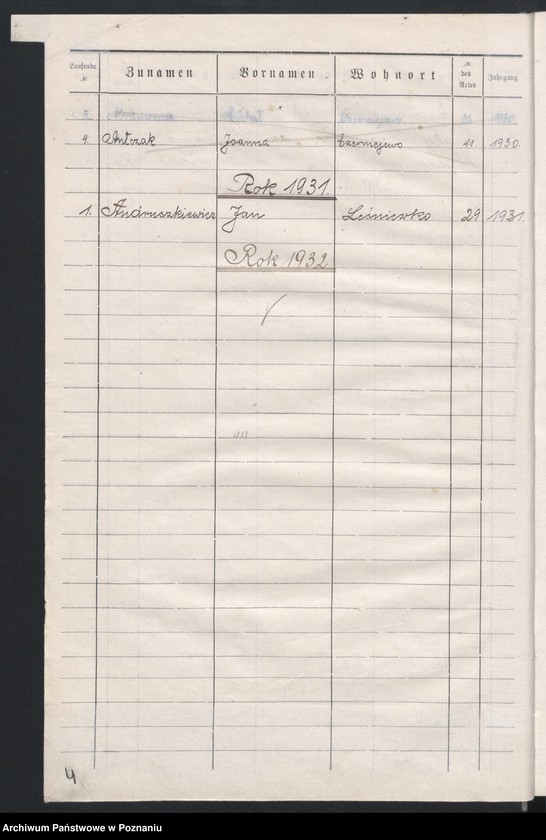 Laufende № Zunamen Vornamen. Wohnort № des Actes Jahrgang
4. Antczak Joanna Czerniejewo 41. 1930.
Rok 1931.
1. Andruszkiewicz Jan Leśniewko 29 1931.
Rok 1932
1933
4
Archiwum Państwowe w Poznaniu